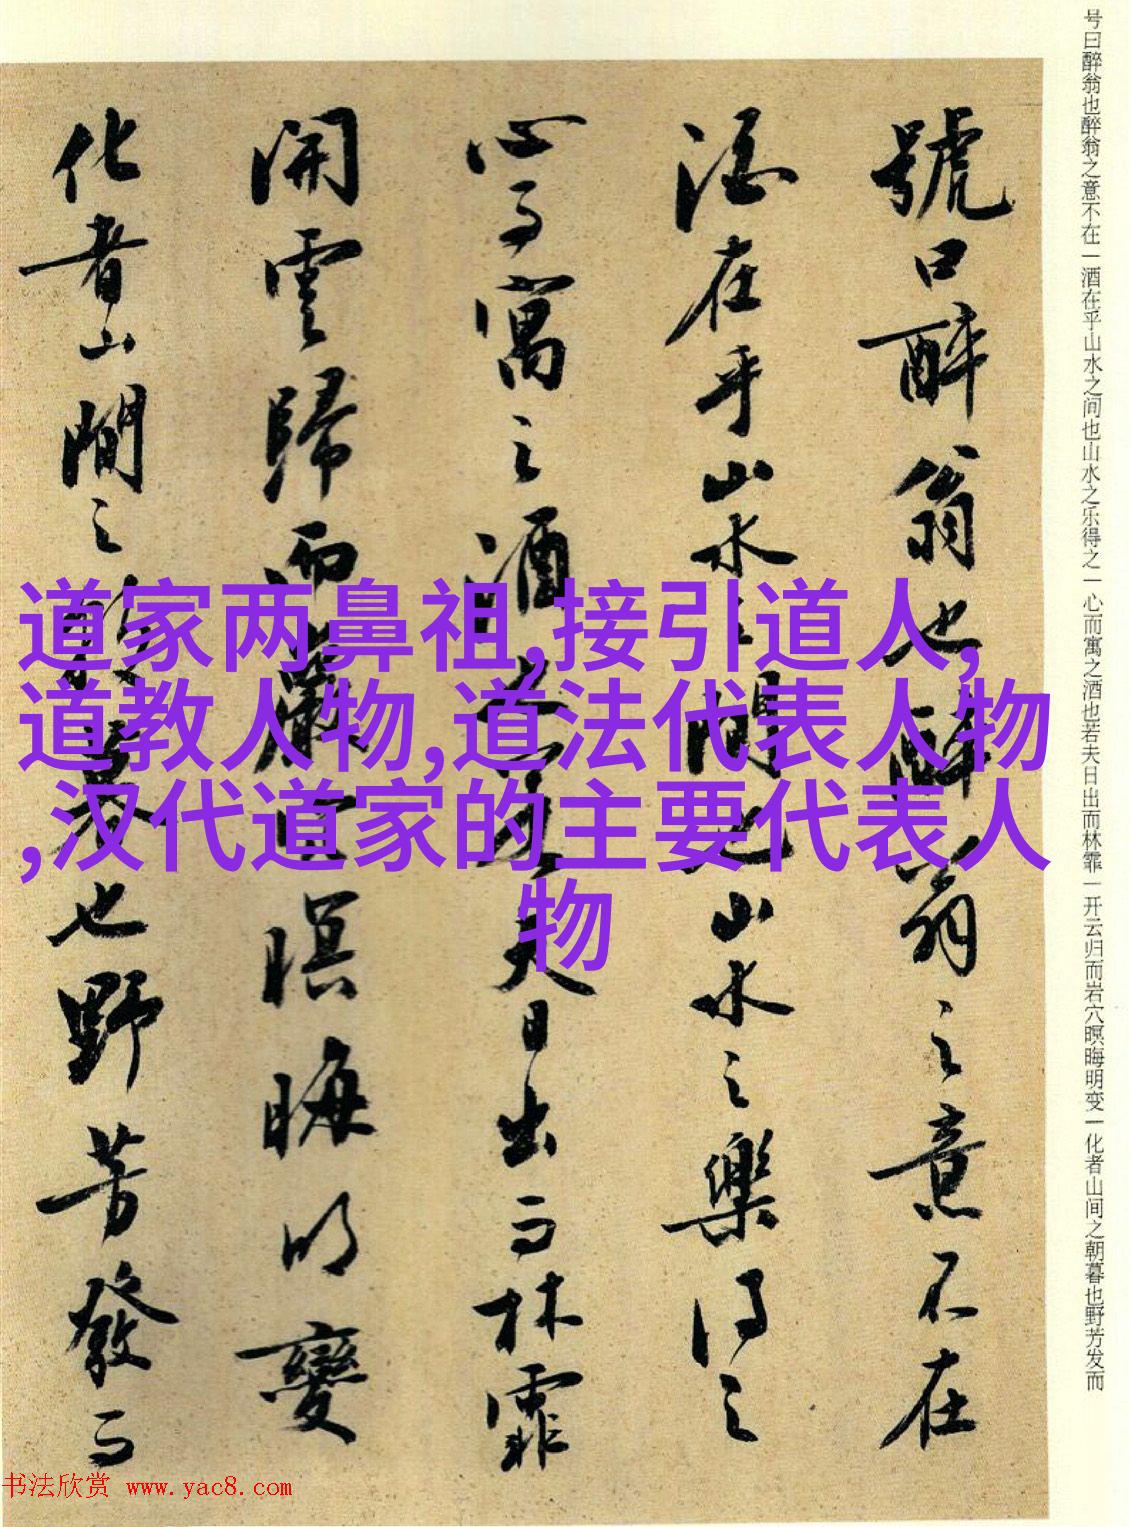 号曰醉翁也醉翁之意不在一酒在乎山水之间也山水之乐得之一心而寓之酒也若夫日出而林霏一开云归而岩穴暝晦明变一化者山间之朝暮也野芳发而
號曰醉翁也醉翁之意不在
酒在乎山水之間也山水之樂得之
心而寓之酒也若夫日出而林霏
開雲歸而巖穴暝晦明變
化者山間之朝暮也野芳發而
道家两鼻祖,接引道人,
道教人物,道法代表人物
,汉代道家的主要代表人
物
书法欣赏 www.yac8.com